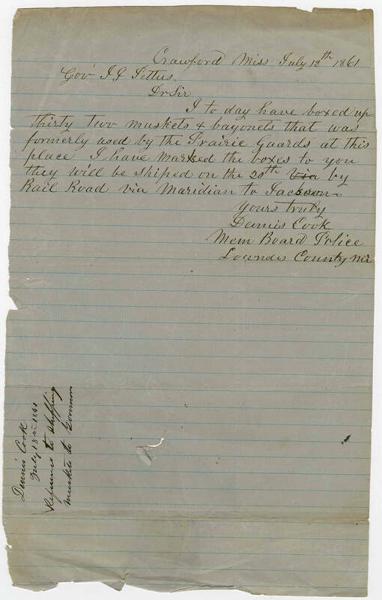 Crawford Miss July 12th 1861
Gov J J Pettus.
Dr Sir
I to day have boxed up
thirty two muskets & bayonets that was
formerly used by the Prairie Guards at this
place I have marked the boxes to you
they will be shiped on the 20th via by
Rail Road via Meridian to Jackson
yours truly
Dennis Cook
Mem Board Police
Lowndes County
Dennis Cook
July 12th 1861
Reference to shipping
muskets to Governor